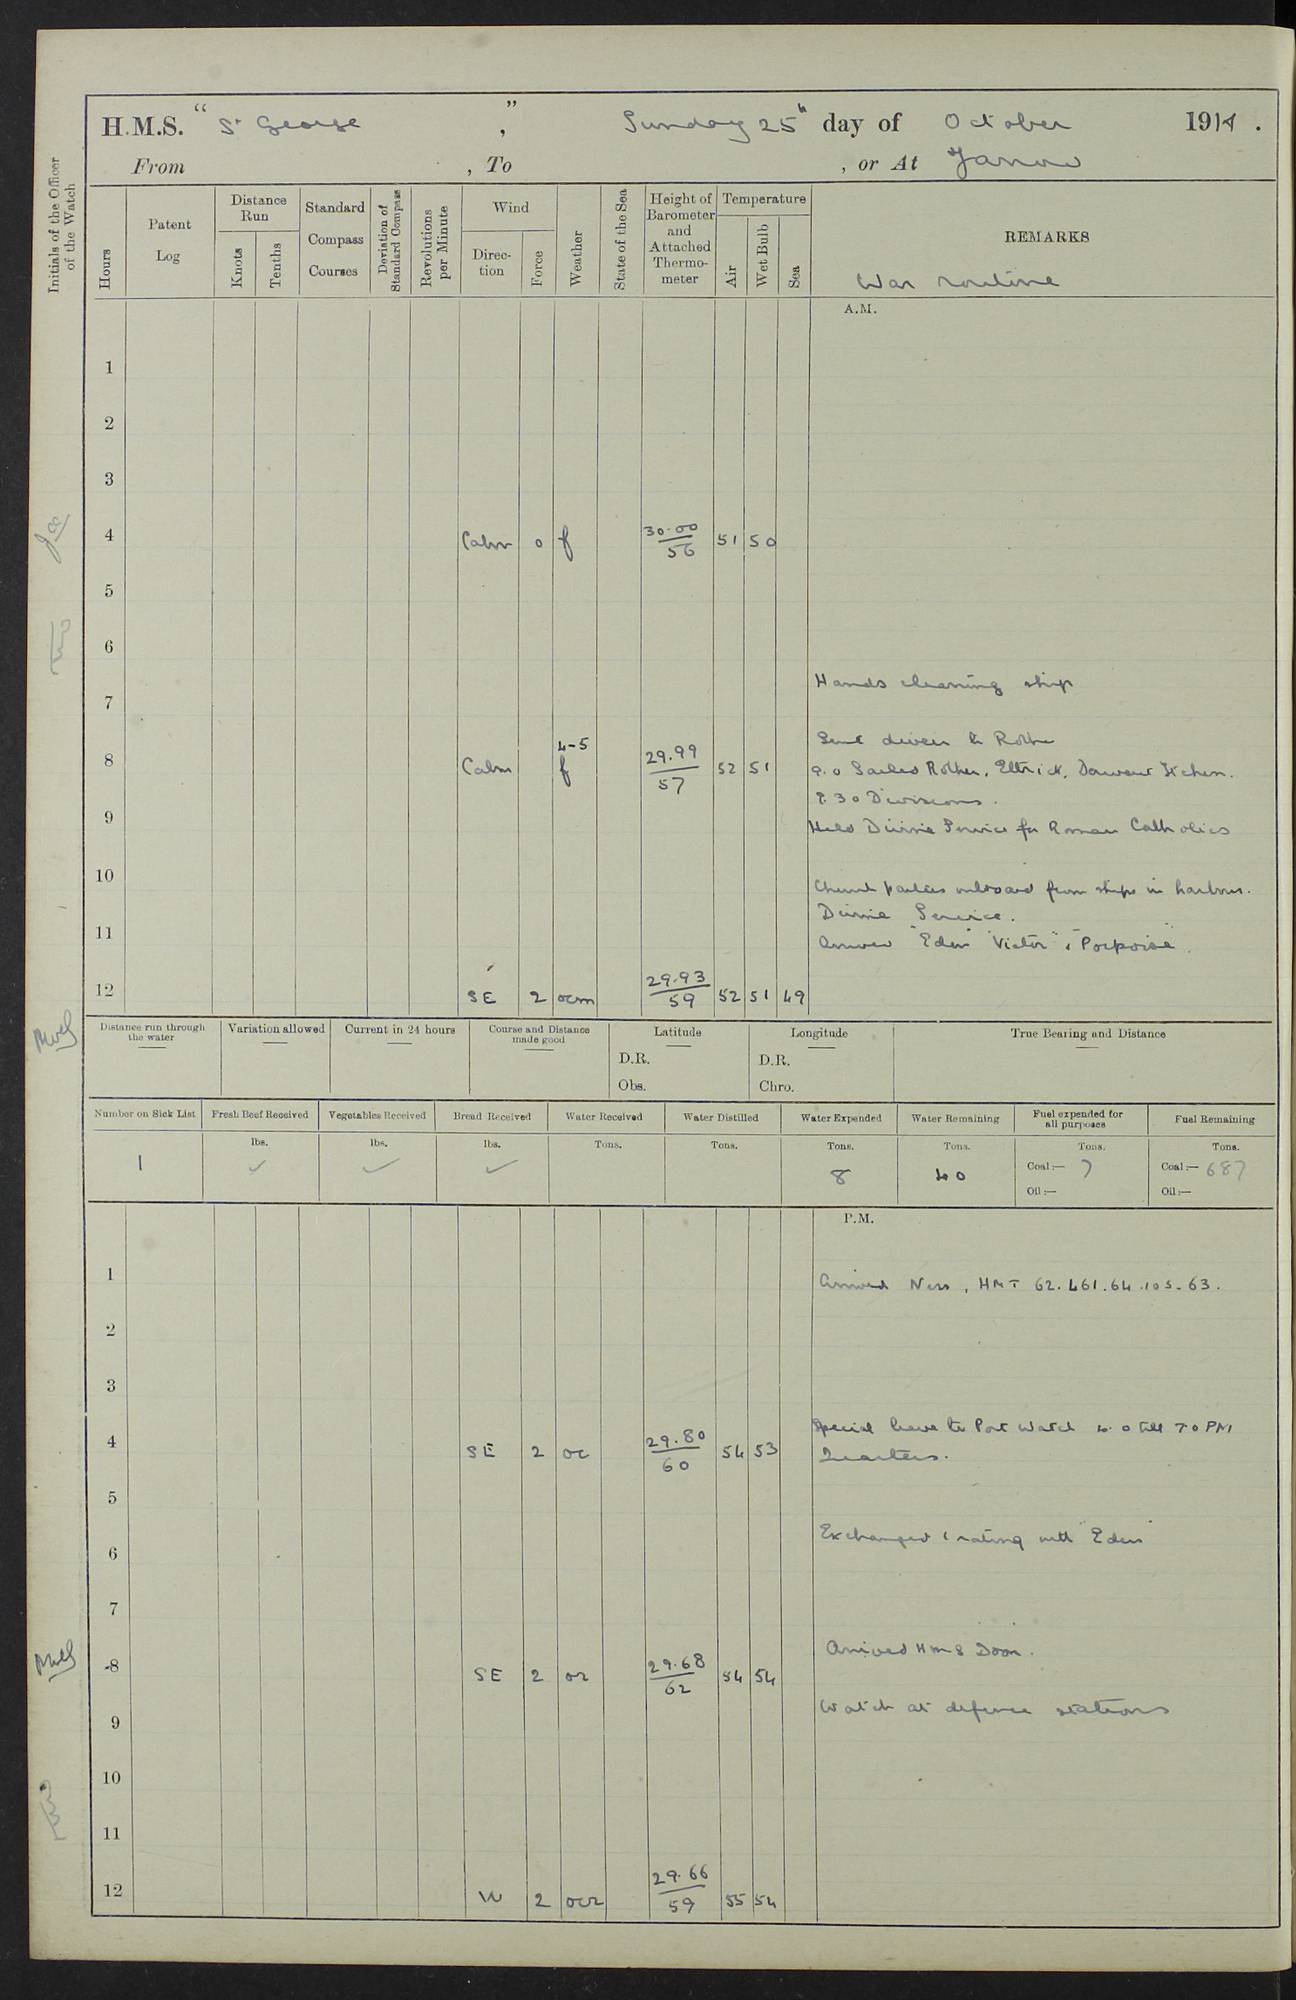 H.M.S. "St George", Sunday 25th day of October 1914.
From , To , or At Jarrow
Initials of the Officer of the Watch
Hours
Patent Log
Distance Run
Knots
Tenths
Standard Compass Courses
Deviation of Standard Compass
Revolutions per Minute
Wind
Direction
Force
Weather
State of the Sea
Height of Barometer and Attached Thermometer
Temperature
Air
Wet Bulb
Sea
REMARKS
War routine
A.M.
1
2
3
4 Calm 0 f 30.00/56 51 50
5
6
Hands cleaning ship
7
Sent divers to Rother
8 Calm 4-5 f 29.99/57 52 51
9.0 Sailed Rother, Ettrick, Derwent Itchen.
9.30 Divisions.
9
Held Divine Service for Roman Catholics
10
Church parties onboard from ships in harbour.
Divine Service.
11
Arrived "Eden" "Victor" & "Porpoise".
12 SE 2 ocm 29.93/59 52 51 49
Distance run through the water
Variation allowed
Current in 24 hours
Course and Distance made good
Latitude
D.R.
Obs.
Longitude
D.R.
Chro.
True Bearing and Distance
Number on Sick List
Fresh Beef Received
Vegetables Received
Bread Received
Water Received
Water Distilled
Water Expended
Water Remaining
Fuel expended for all purposes
Fuel Remaining
1
lbs. ✓
lbs. ✓
lbs. ✓
Tons.
Tons.
Tons. 8
Tons. 40
Tons. Coal:— 7 Oil:—
Tons. Coal:— 687 Oil:—
P.M.
1 Arrived Ness, HMT 62. 461. 64. 105. 63.
2
3
Special leave to Port Watch 4.0 till 7 0 PM
4 SE 2 oc 29.80/60 54 53
Quarters.
5
Exchanged 1 rating with "Eden"
6
7
Arrived HMS Doon.
8 SE 2 or 29.68/62 54 54
Watch at defence stations
9
10
11
12 W 2 ocr 29.66/59 55 54